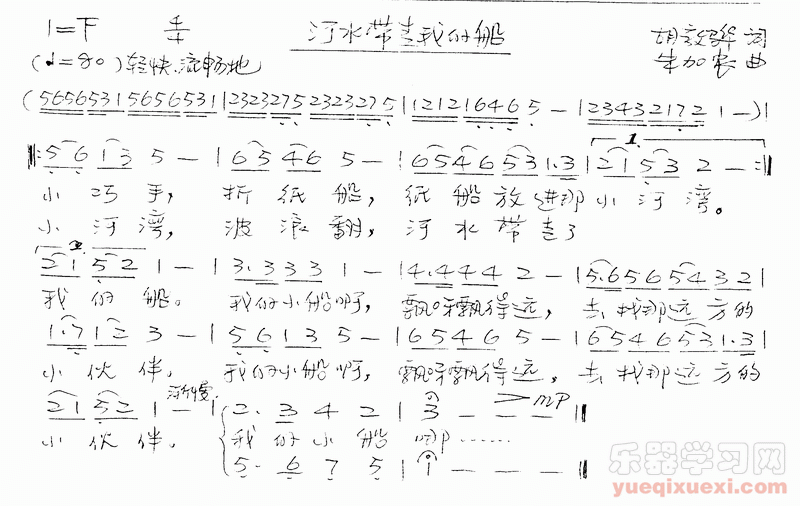 1=F 4/4 河水带走我的船 胡敦骅 词
(♩=90) 轻快、流畅地 牛加农 曲
(5656531 5656531|2323275 2323275|12121646 5 —|23432172 1 —)|
1.
‖:56 13 5 —|65 46 5 —|6546 531.3|21 53 2 —:‖
小 巧 手, 折 纸 船, 纸 船 放 进那 小 河 湾。
小 河 湾, 波 浪 翻, 河 水 带 走了
2.
21 52 1 —|3.333 1 —|4.444 2 —|5.656 5432|
我 的 船。 我的小船啊, 飘呀飘得远, 去找那远方的
1.712 3 —|5613 5 —|6546 5 —|6546 531.3|
小 伙 伴, 我的小船啊, 飘呀飘得远, 去找那远方的
21 52 1 —|渐慢 2. 3 4 2|3 — — —‖ mp
小 伙 伴。 我 的 小 船 啊……
5. 6 7 5|1 — — —‖
乐器学习网
yueqixuexi.com